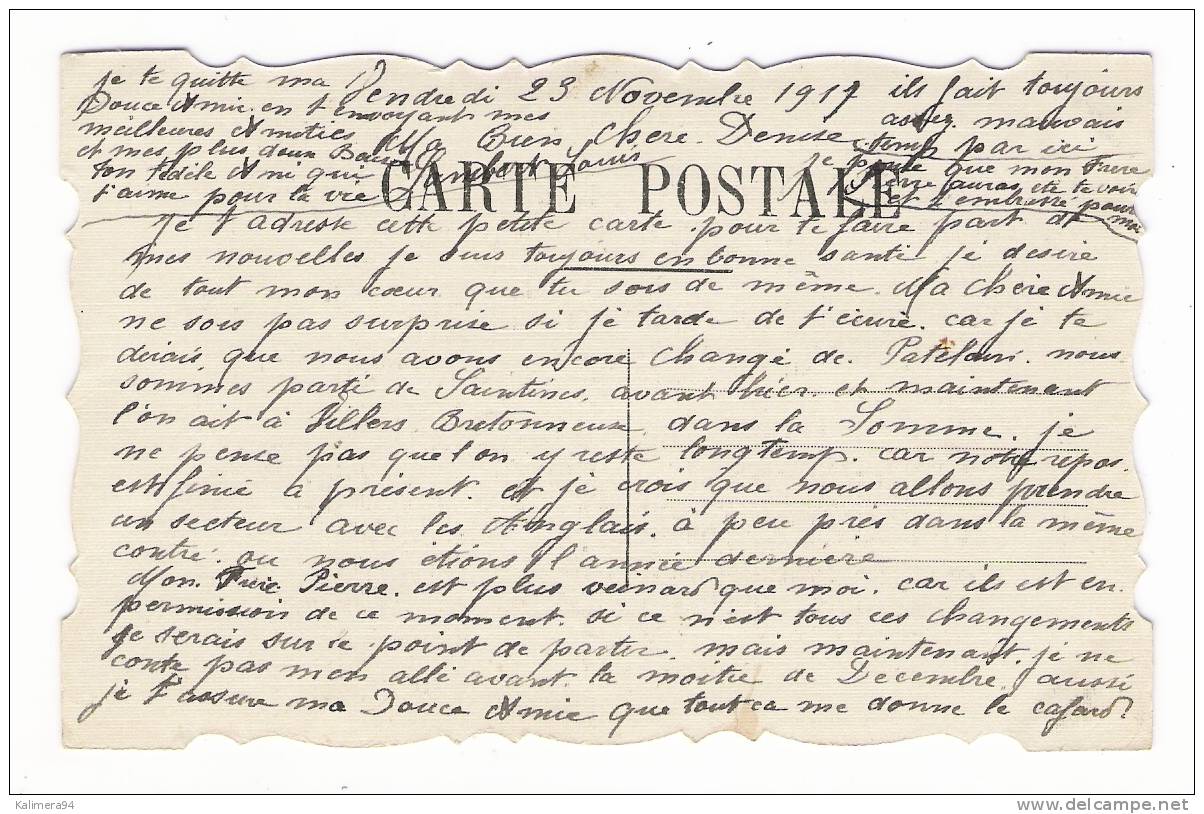 Vendredi 23 Novembre 1917
Ma Bien Chère Denise
CARTE POSTALE
Je t'adresse cette petite carte pour te faire part de
mes nouvelles je suis toujours en bonne santé je desire
de tout mon cœur que tu sois de même. Ma Chère Amie
ne sois pas surprise si je tarde de t'écrire. car je te
dirais que nous avons encore changé de. Patelin. nous
sommes parti de Saintines. avant hier et maintenant
l'on ait à Villers Bretonneux dans la Somme. je
ne pense pas que l'on y reste longtemp. car notre repos.
est finie a présent. et je crois que nous allons prendre
un secteur avec les Anglais. à peu près dans la même
contré. ou nous étions l'année dernière
Mon. Frère Pierre. est plus veinard que moi. car ils est en.
permission de ce moment. si ce n'est tous ces changements
je serais sur le point de partir. mais maintenant. je ne
conte pas m'en allé avant. la moitié de Decembre. aussi
je t'assure ma Douce Amie que tout ca me donne le cafard.
ils fait toujours
assez. mauvais
temp par ici
je pense que mon Frère
Pierre auras été te voir
et t'embrassé pour
moi
je te quitte ma
Douce Amie. en t'envoyant mes
meilleures Amitiés
et mes plus doux Baisers
ton fidèle Ami qui
t'aime pour la vie
Louis
Kalimera94
www.delcampe.net